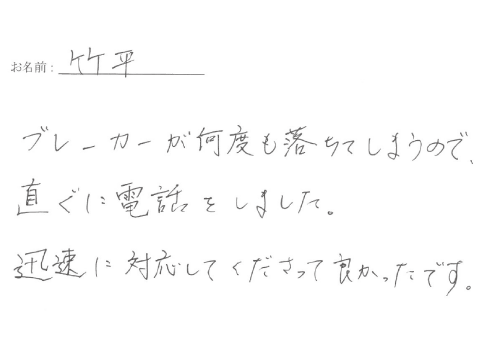 お名前： 竹平
ブレーカーが何度も落ちてしまうので、
直ぐに電話をしました。
迅速に対応してくださって良かったです。